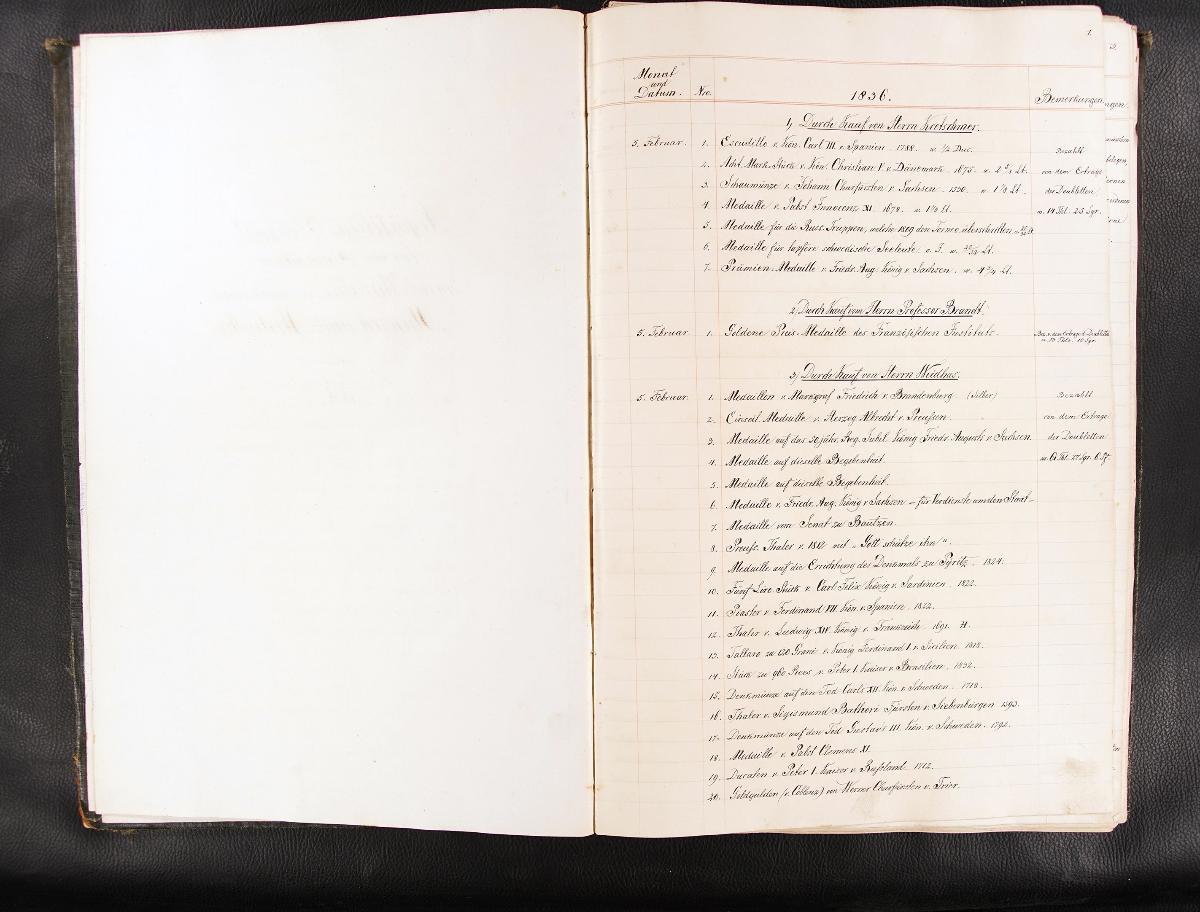 1.
Monat und Datum. Nro. 1836. Bemerkungen.
1) Durch Kauf von Herrn Kretschmer.
5. Februar. 1. Escudillo v. Kön. Carl III v. Spanien. 1788. w. 1/2 Duc. Bezahlt
2. Acht Mark-Stück v. Kön. Christian V. v. Dänemark. 1675. w. 4 3/4 Lt. von dem Ertrage
3. Schaumünze v. Johann Churfürsten v. Sachsen. 1530. w. Lt. der Doubletten
4. Medaille v. Pabst Innocenz XI. 1678. w. Lt. m. 14 Thl. 25 Sgr.
5. Medaille für die Russ. Truppen, welche 1809 den Torneo überschritten
6. Medaille für tapfere schwedische Seeleute o. J. w. Lt.
7. Prämien-Medaille v. Friedr. Aug. König v. Sachsen. w. 4 3/4 Lt.
2) Durch Kauf vom Herrn Professor Brandt.
5. Februar 1. Goldene Preis-Medaille des Französischen Instituts. Bez. v. dem Ertrage d. Doublette
10 Sgr.
3) Durch Kauf von Herrn Weidhas.
5. Februar. 1. Medaillon v. Markgraf Friedrich v. Brandenburg. (Silber) Bezahlt
2. Einseit. Medaille v. Herzog Albrecht v. Preußen. von dem Ertrage
3. Medaille auf das 50 jähr. Reg. Jubil. König Friedr. Augusts v. Sachsen. der Doubletten
4. Medaille auf dieselbe Begebenheit. m. 6 Thl. 27 Sgr. 6 Pf.
5. Medaille auf dieselbe Begebenheit.
6. Medaille v. Friedr. Aug. König v. Sachsen – für Verdienste um den Staat –
7. Medaille vom Senat zu Bautzen.
8. Preuß. Thaler v. 1812 mit „Gott schütze ihn".
9. Medaille auf die Errichtung des Denkmals zu Pyritz. 1824.
10. Fünf Lire Stück v. Carl Felix König v. Sardinien. 1822.
11. Piaster v. Ferdinand VII. Kön. v. Spanien. 1822.
12. Thaler v. Ludwig XIV. König v. Frankreich. 1691. H.
13. Tallaro zu 120 Grani v. König Ferdinand I. v. Sicilien. 1818.
14. Stück zu 960 Rees v. Peter I. Kaiser v. Brasilien. 1832.
15. Denkmünze auf den Tod Carls XII. Kön. v. Schweden. 1718.
16. Thaler v. Sigismund Bathori Fürsten v. Siebenbürgen 1593.
17. Denkmünze auf den Tod Gustavs III. Kön. v. Schweden. 1792.
18. Medaille v. Pabst Clemens XI.
19. Ducaten v. Peter I. Kaiser v. Rußland. 1712.
20. Goldgulden (v. Coblenz) von Werner Churfürsten v. Trier.